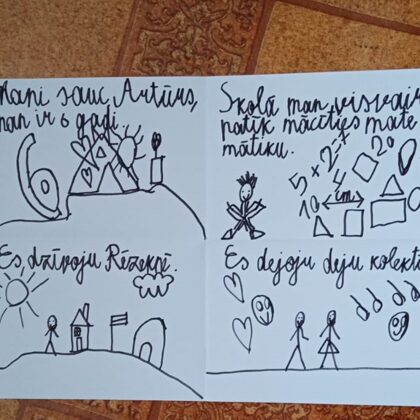 Mani sauc Artūrs,
man ir 6 gadi.
6
Skolā man visvairāk
patīk mācīties mate
mātiku.
5 × 2 =
20
10
cm
Es dzīvoju Rēzeknē.
Es dejoju deju kolektī